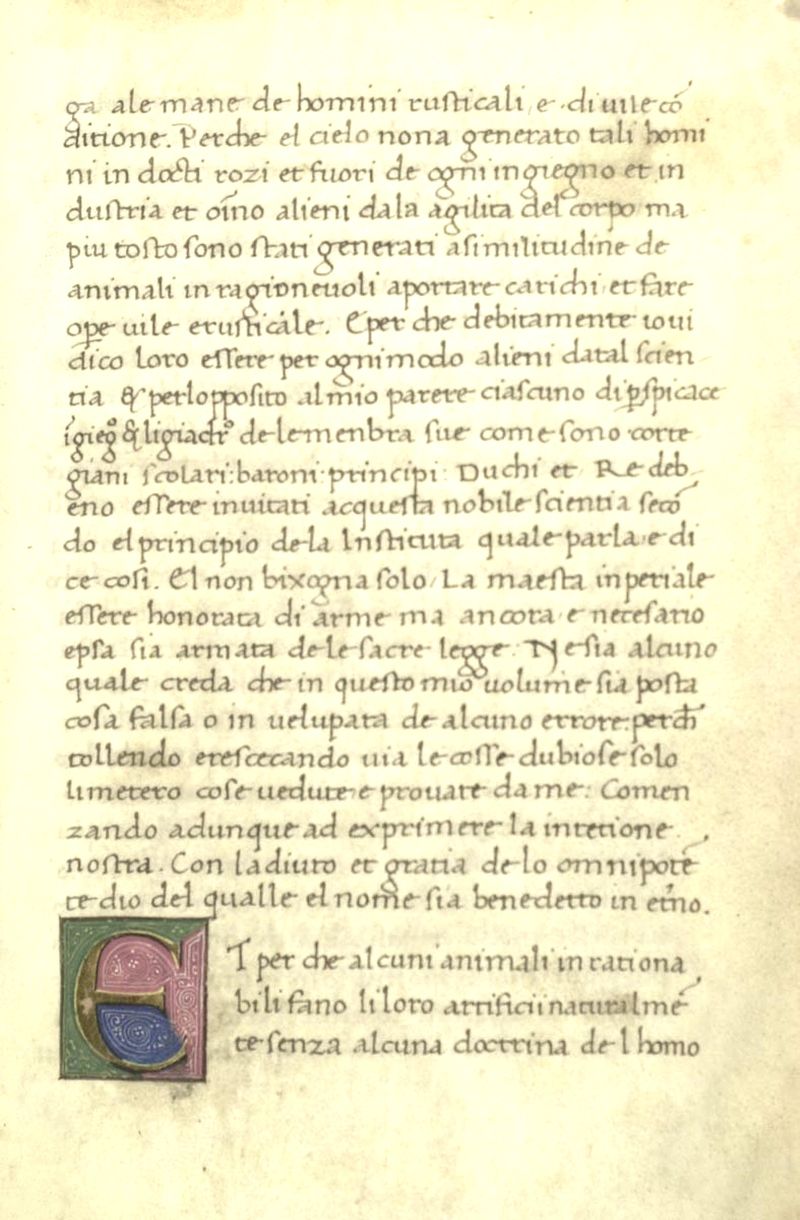 ga ale mane de homini rusticali e di uile cō
ditione. Perche el cielo nona generato tali homi
ni in docti rozi et fuori de ogni ingiegno et in
dustria et oīno alieni dala agilita del corpo ma
piu tosto sono stati generati a similitudine de
animali in ragioneuoli aportare carichi et fare
ope uile e rusticale. E per che debitamente io ui
dico loro essere per ogni modo alieni da tal scien
tia & per lo opposito al mio parere ciascuno di pspicace
īgiegō & ligiadr̄ dele menbra sue come sono corte
giani scolari: baroni principi Duchi et Re deb
eno essere inuitati acquesta nobile scientia secō
do el principio de la Instituta quale parla e di
ce cosi. El non bixogna solo La maesta inperiale
essere honorata di arme ma ancora e necesario
epsa sia armata de le sacre legge. Ne sia alcuno
quale creda che in questo mio uolume sia posta
cosa falsa o in uelupata de alcuno errore: perch̄
tollendo e rescecando uia le cosse dubiose solo
li metero cose uedute e prouate da me. Comen
zando adunque ad exprimere la intētione
nostra. Con ladiuto et gratia de lo omnipotē
te dio del qualle el nome sia benedetto in et̄no.
ET per che alcuni animali in rationa
bili fano li loro artificii naturalmē
te senza alcuna doctrina de l homo